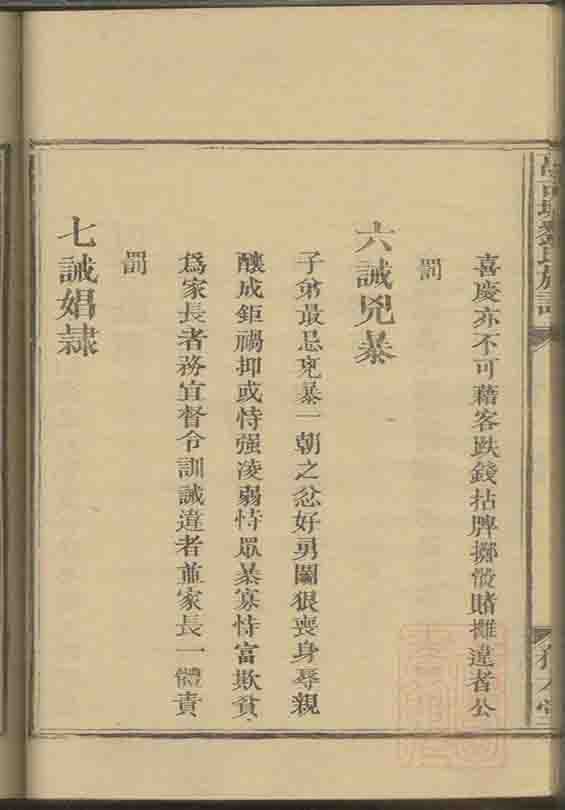 氏族譜
喜慶亦不可藉客跌錢拈牌擲骰賭攤違者公
罰
六誡兇暴
子弟最忌兇暴一朝之忿好勇鬬狠喪身辱親
釀成鉅禍抑或恃强凌弱恃眾暴寡恃富欺貧
爲家長者務宜督令訓誡違者並家長一體責
罰
七誡娼隷